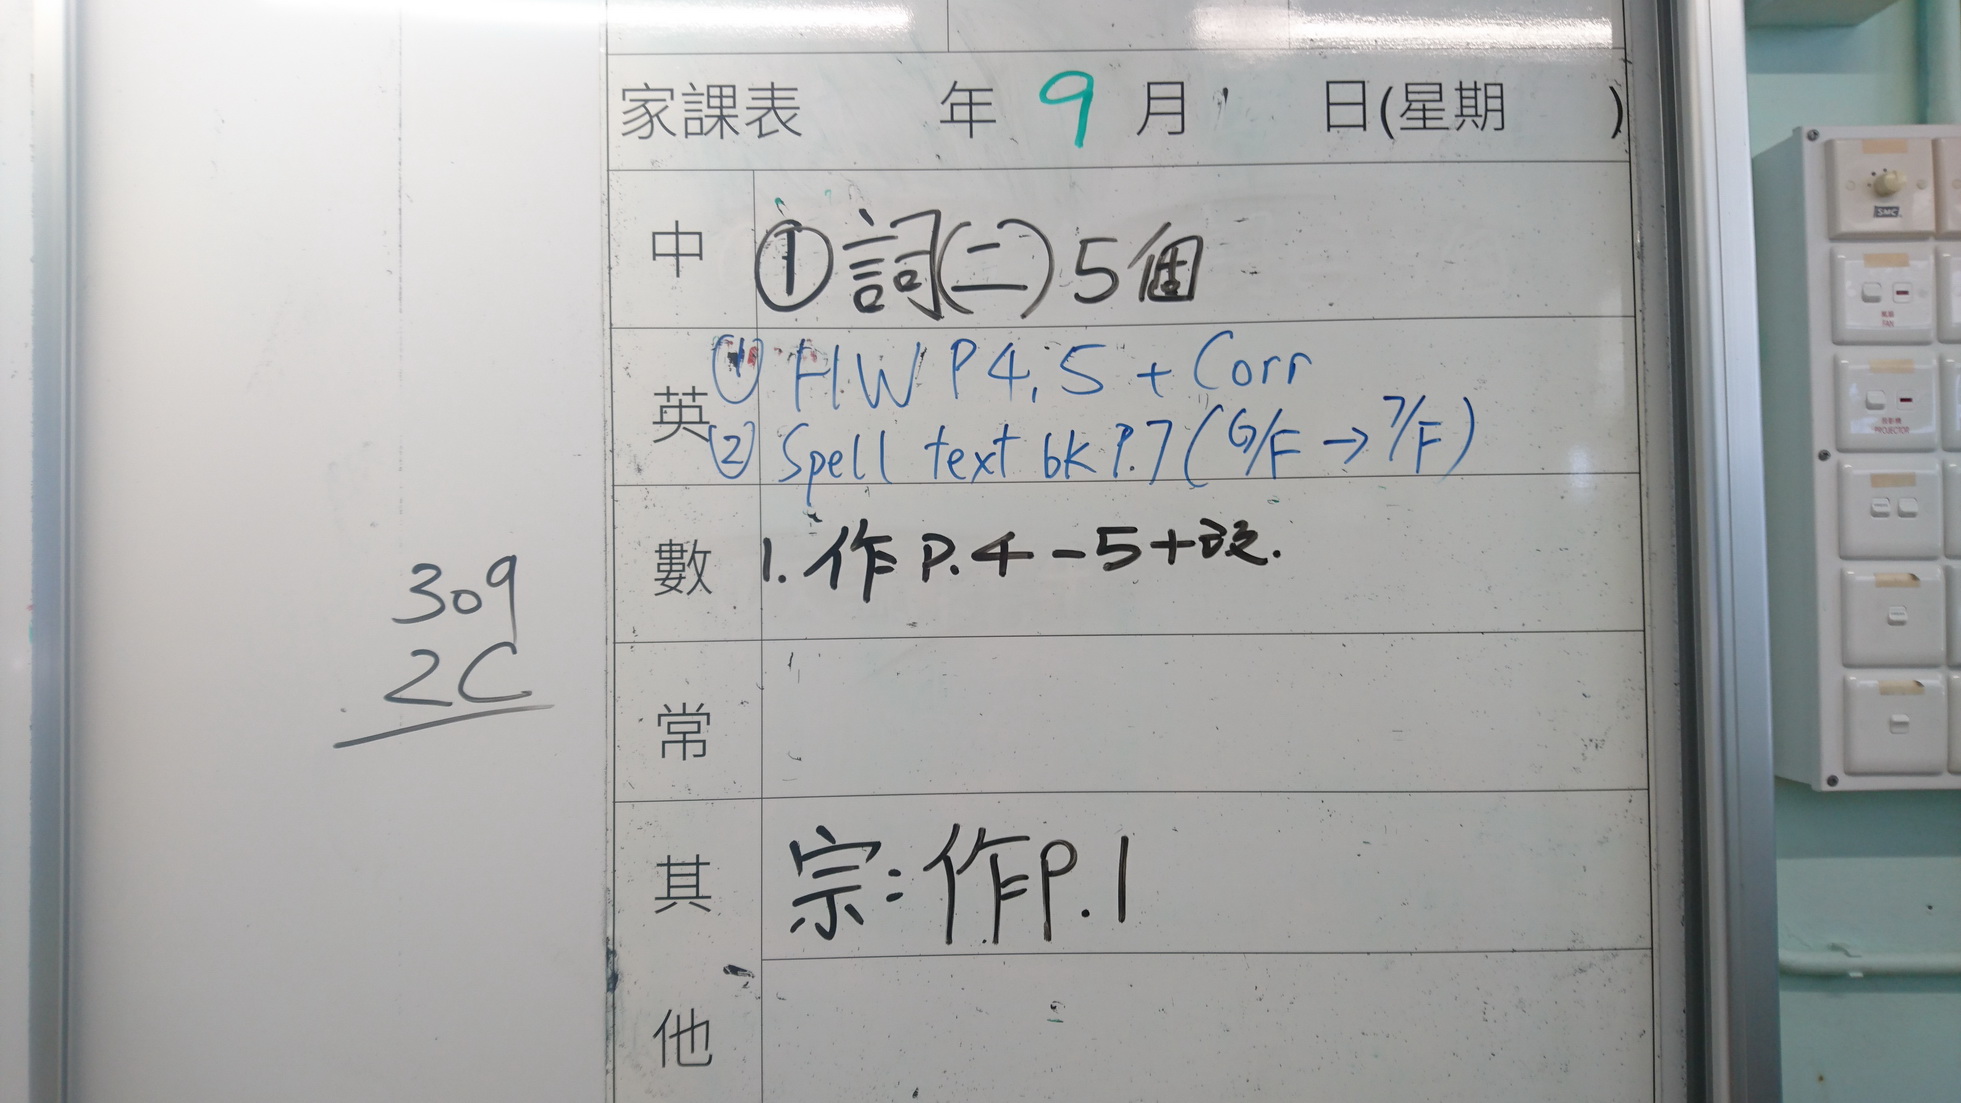 家課表 年 9 月 日(星期 )
中 ①詞(二)5個
英 ① HW P4,5 + Corr
② Spell text bk P.7 (G/F → 7/F)
數 1. 作 P.4-5+改.
常
其他 宗:作P.1
309
2C
SMC
FAN
PROJECTOR